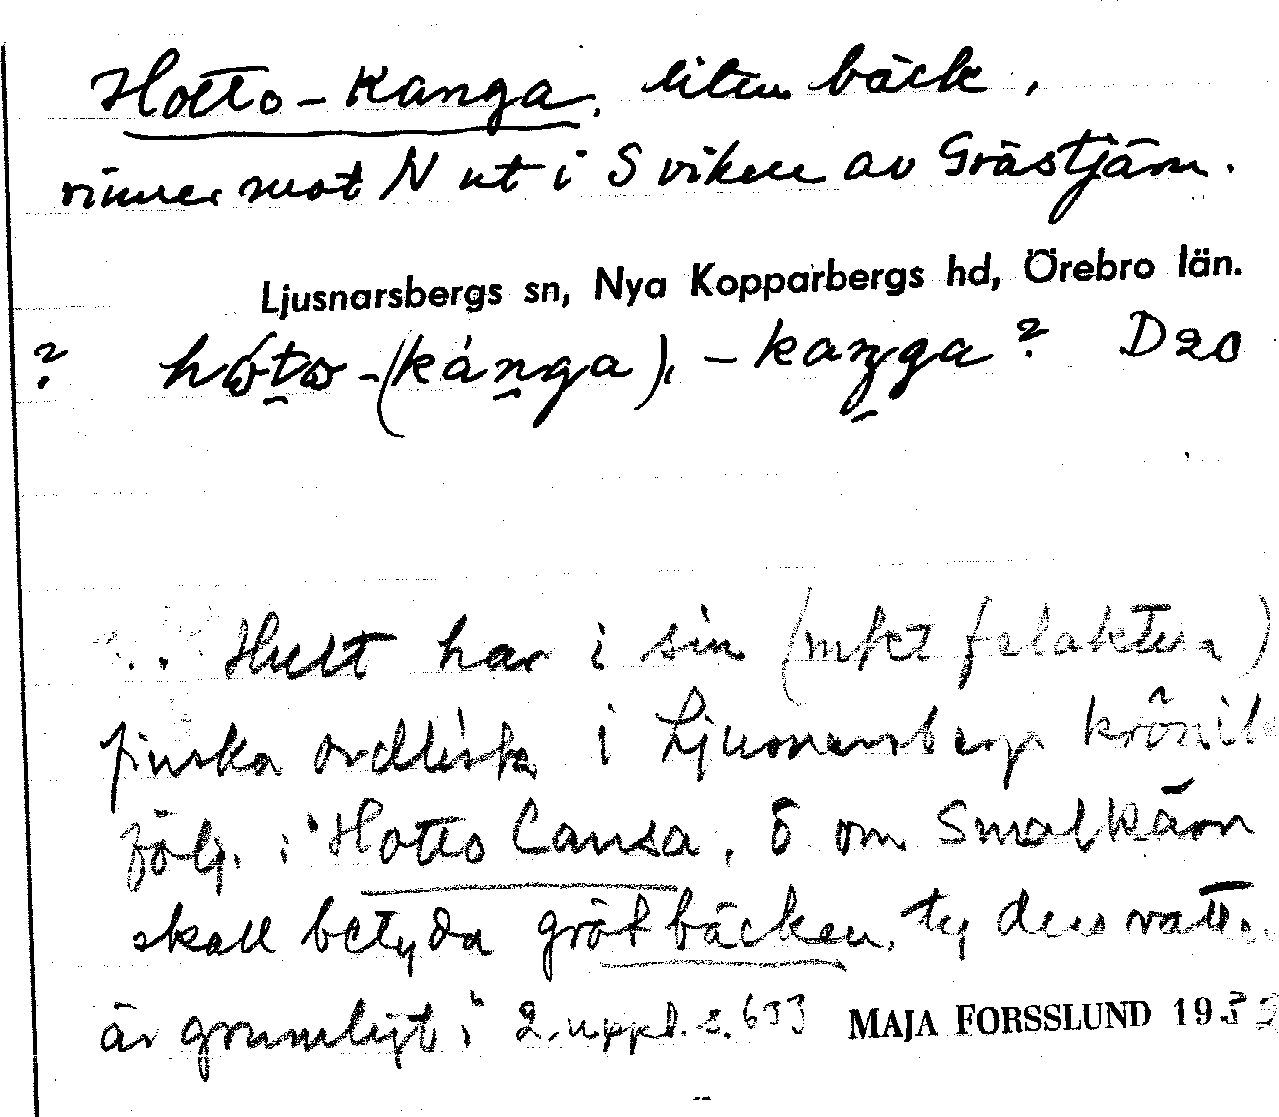 Hotto-Kanga, liten bäck,
rinner mot N ut i S viken av Grästjärn.
Ljusnarsbergs sn, Nya Kopparbergs hd, Örebro län.
? hóto-(kánga), -kaŋga? D20
Hult har i sin (mkt felaktiga)
finska ordlista i Ljusnarsbergs krönik
följ.: "Hotto Cansa, ö om Smalkärn
skall betyda grötbäcken, ty dess
är grumligt" 2. uppl. s. 633 MAJA FORSSLUND 193